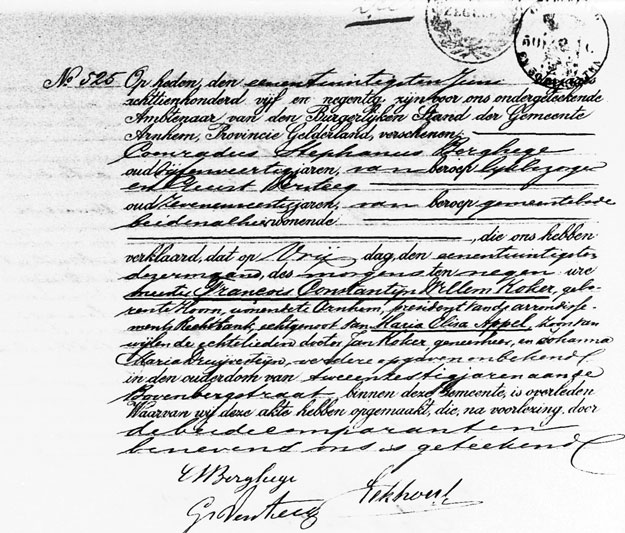 No 525 Op heden, den eenentwintigsten Juni
achttienhonderd vijf en negentig, zijn voor ons ondergeteekende
Ambtenaar van den Burgerlijken Stand der Gemeente
Arnhem, Provincie Gelderland, verschenen:
Conradus Stephanus Berghege
oud jaren, van beroep
en
oud jaren, van beroep gemeentebode
beiden alhier wonende
, die ons hebben
verklaard, dat op Vrij dag, den eenentwintigsten
dezer maand, des morgens ten negen ure
meester François Constantijn Willem Koker, gebo-
ren te Hoorn, wonende te Arnhem, president van de arrondisse-
ments Rechtbank, echtgenoot van Maria Elisa Appel, zoon van
wijlen de echtelieden doctor Jan Koker, geneesheer, en Johanna
Maria, verdere opgaven onbekend
in den ouderdom van tweeenzestig jaren aan de
Bovenbergstraat, binnen deze Gemeente, is overleden
Waarvan wij deze akte hebben opgemaakt, die, na voorlezing, door
de beide comparanten
benevens ons is geteekend
Berghege